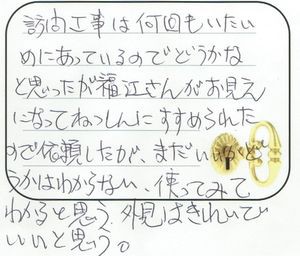 訪問工事は何回もいたい
めにあっているのでどうかな
と思ったが福江さんがお見え
になってねっしんにすすめられた
ので依頼したが、まだいいかど
うかはわからない、使ってみて
わかると思う。外見はきれいで
いいと思う。